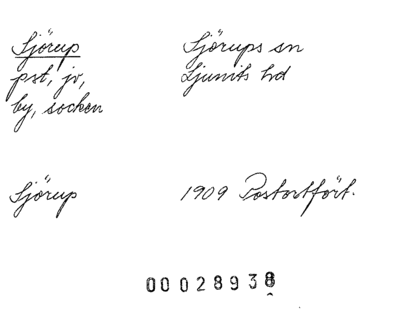 Sjörup
Sjörups sn
pst, jv,
Ljunits hd
by, socken
Sjörup
1909 Postortfört.
00028938